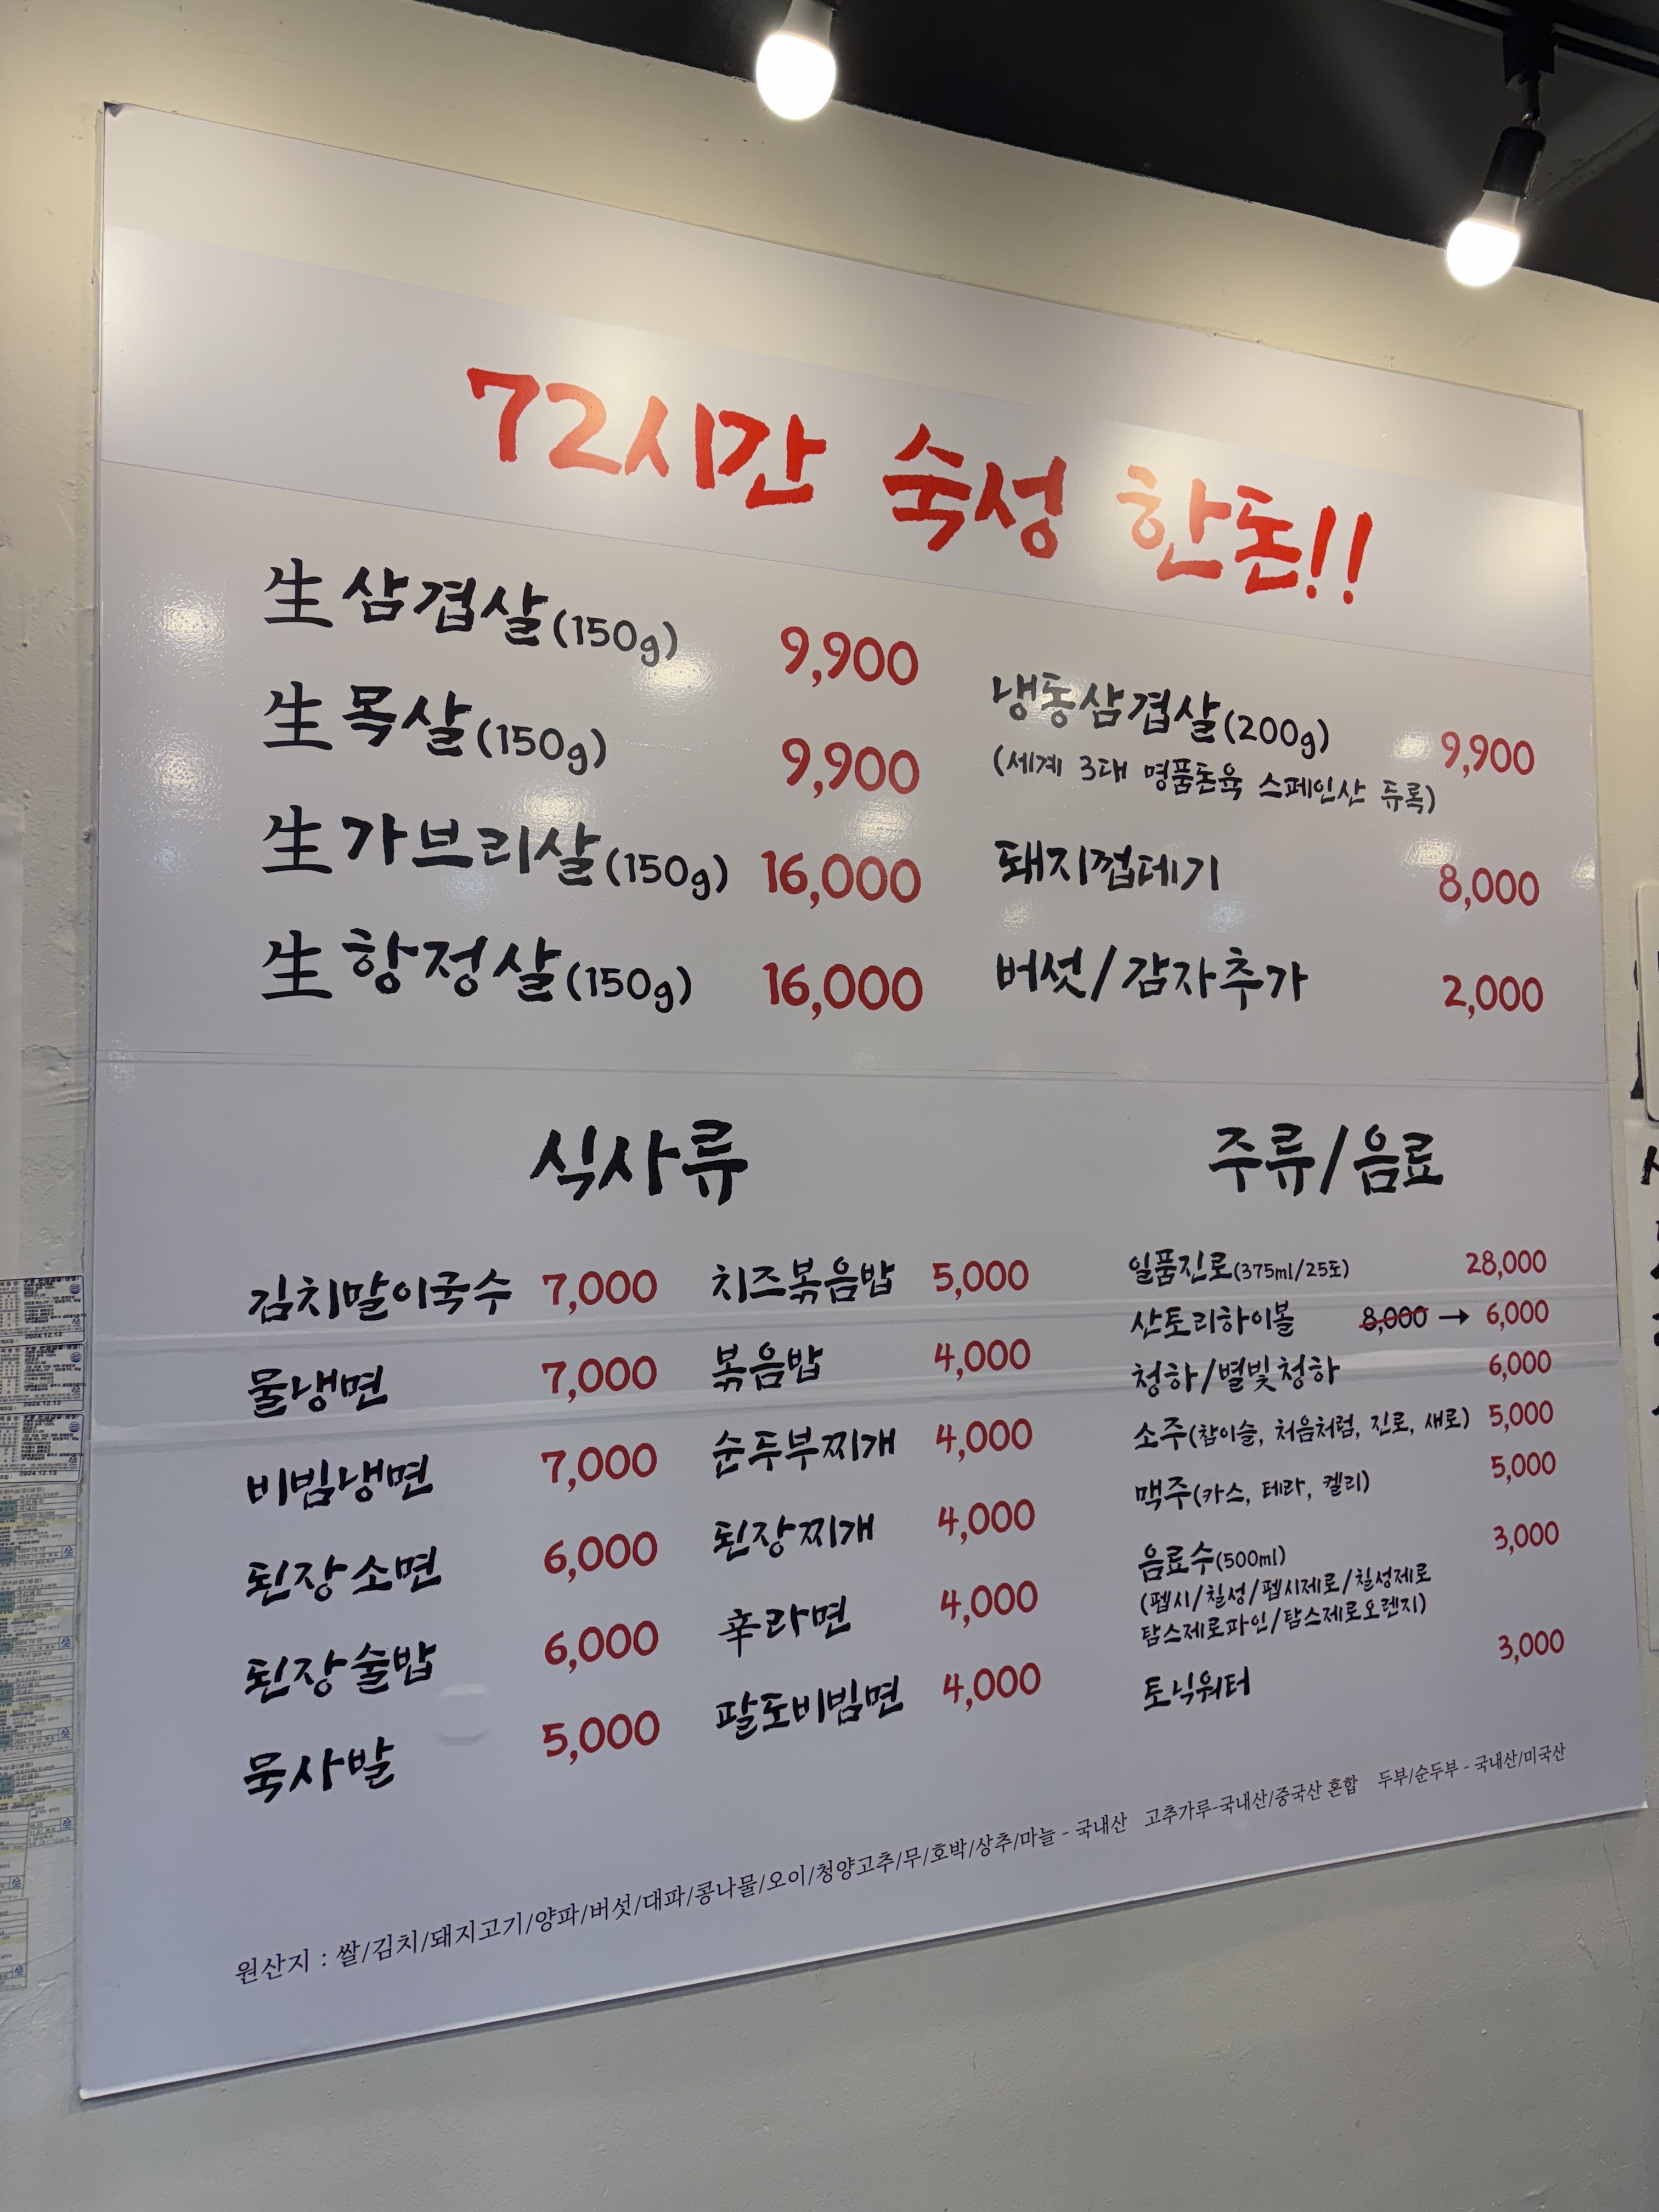 72시간 숙성 한돈!!
生삼겹살(150g) 9,900
生목살(150g) 9,900
生가브리살(150g) 16,000
生항정살(150g) 16,000
냉동삼겹살(200g) 9,900
(세계 3대 명품돈육 스페인산 듀록)
돼지껍데기 8,000
버섯/감자추가 2,000
식사류
김치말이국수 7,000
물냉면 7,000
비빔냉면 7,000
된장소면 6,000
된장술밥 6,000
묵사발 5,000
치즈볶음밥 5,000
볶음밥 4,000
순두부찌개 4,000
된장찌개 4,000
辛라면 4,000
팔도비빔면 4,000
주류/음료
일품진로(375ml/25도) 28,000
산토리하이볼 8,000 → 6,000
청하/별빛청하 6,000
소주(참이슬, 처음처럼, 진로, 새로) 5,000
맥주(카스, 테라, 켈리) 5,000
음료수(500ml) 3,000
(펩시/칠성/펩시제로/칠성제로
탐스제로파인/탐스제로오렌지)
토닉워터 3,000
원산지 : 쌀/김치/돼지고기/양파/버섯/대파/콩나물/오이/청양고추/무/호박/상추/마늘 - 국내산 고추가루-국내산/중국산 혼합 두부/순두부 - 국내산/미국산
2024.12.13
2024.12.13
2024.12.13